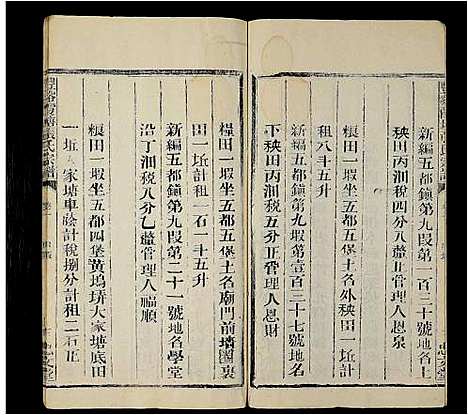 新編五都鎮第九叚第一百三十號地名上
秧田丙測稅四分八厘正管理人恩泉
新編五都鎮第九叚第壹百三十七號地名
糧田一叚坐五都五堡土名外秧田一坵計
租八斗五升
下秧田丙測稅五分正管理人恩財
糧田一叚坐五都五堡土名廟門前墻圍裏
田一坵計租一石一斗五升
新編五都鎮第九叚第二十一號地名學堂
沿丁測稅八分乙釐管理人福順
糧田一叚坐五都四堡黃塢琾大家塘底田
一坵大家塘車蔭計稅捌分計租二石正